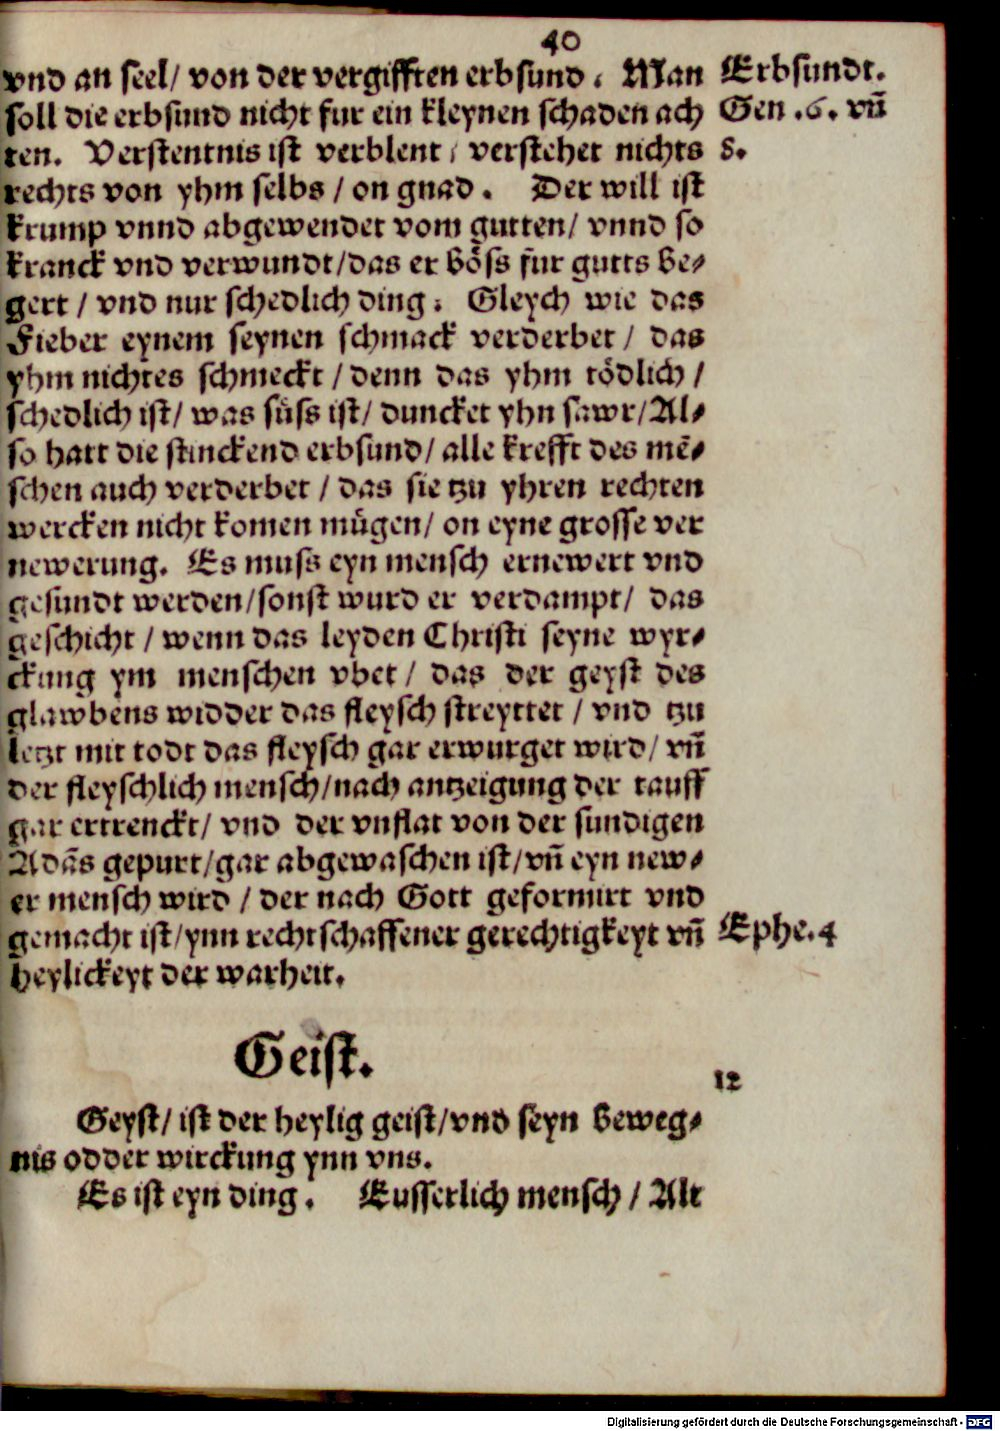 40
vnd an seel/ von der vergifften erbsund. Man
Erbsundt.
soll die erbsund nicht fur ein kleynen schaden ach
Gen .6. vn̄
ten. Verstentnis ist verblent, verstehet nichts
8.
rechts von yhm selbs / on gnad. Der will ist
krump vnnd abgewendet vom gutten/ vnnd so
kranck vnd verwundt/das er böss fur gutts be⸗
gert / vnd nur schedlich ding. Gleych wie das
Fieber eynem seynen schmack verderbet / das
yhm nichtes schmeckt / denn das yhm tödlich /
schedlich ist/ was süss ist/ duncket yhn sawr/Al⸗
so hatt die stinckend erbsund/ alle krefft des mē⸗
schen auch verderbet / das sie tzu yhren rechten
wercken nicht komen mügen/ on eyne grosse ver
newerung. Es muss eyn mensch ernewert vnd
gesundt werden/sonst wurd er verdampt/ das
geschicht / wenn das leyden Christi seyne wyr⸗
ckung ym menschen vbet / das der geyst des
glawbens widder das fleysch streyttet / vnd tzu
letzt mit todt das fleysch gar erwurget wird/ vn̄
der fleyschlich mensch/nach antzeigung der tauff
gar ertrenckt/ vnd der vnflat von der sundigen
Adās gepurt/gar abgewaschen ist/vn̄ eyn new⸗
er mensch wird / der nach Gott geformirt vnd
gemacht ist/ynn rechtschaffener gerechtigkeyt vn̄
Ephe.4
heylickeyt der warheit.
Geist.
12
Geyst/ ist der heylig geist/vnd seyn beweg⸗
nis odder wirckung ynn vns.
Es ist eyn ding. Eusserlich mensch / Alt
Digitalisierung gefördert durch die Deutsche Forschungsgemeinschaft - DFG